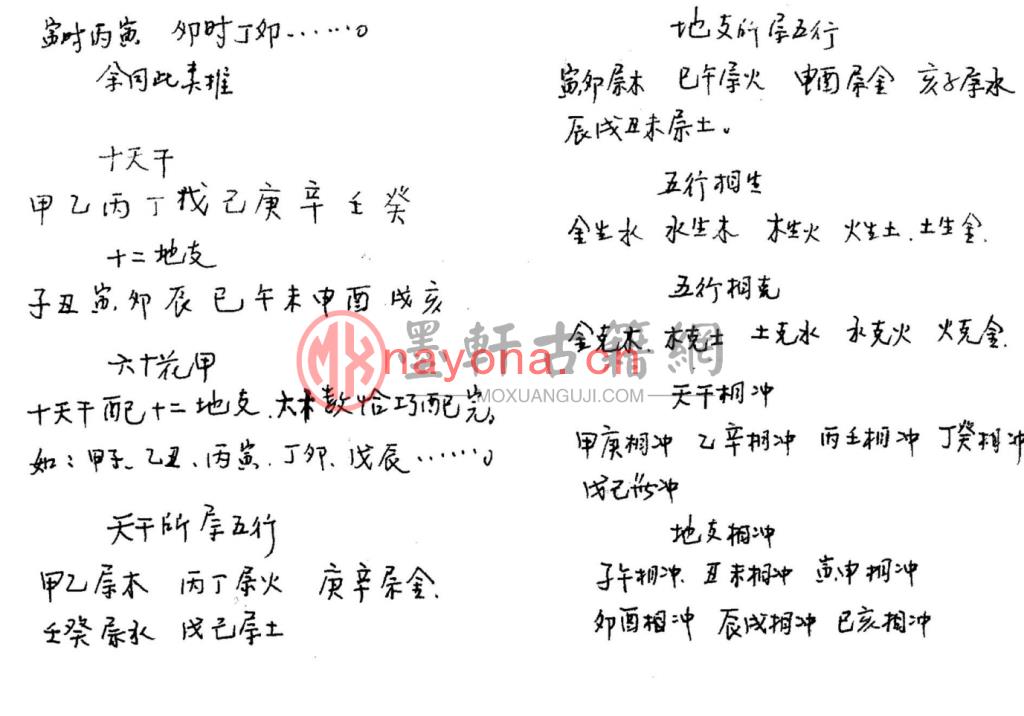 寅时丙寅 卯时丁卯……。
余同此类推
十天干
甲乙丙丁戊己庚辛壬癸
十二地支
子丑寅卯辰巳午未申酉戌亥
六十花甲
十天干配十二地支、六十数恰巧配完。
如：甲子、乙丑、丙寅、丁卯、戊辰……。
天干所属五行
甲乙属木 丙丁属火 庚辛属金.
壬癸属水 戊己属土
地支所属五行
寅卯属木 巳午属火 申酉属金 亥子属水
辰戌丑未属土。
五行相生
金生水 水生木 木生火 火生土.土生金.
五行相克
金克木. 木克土 土克水 水克火 火克金.
天干相冲
甲庚相冲 乙辛相冲 丙壬相冲 丁癸相冲
戊己
地支相冲
子午相冲、丑未相冲 寅申相冲
卯酉相冲 辰戌相冲 巳亥相冲
墨軒古籍網
nayona.cn
MOXUANGUJI.COM